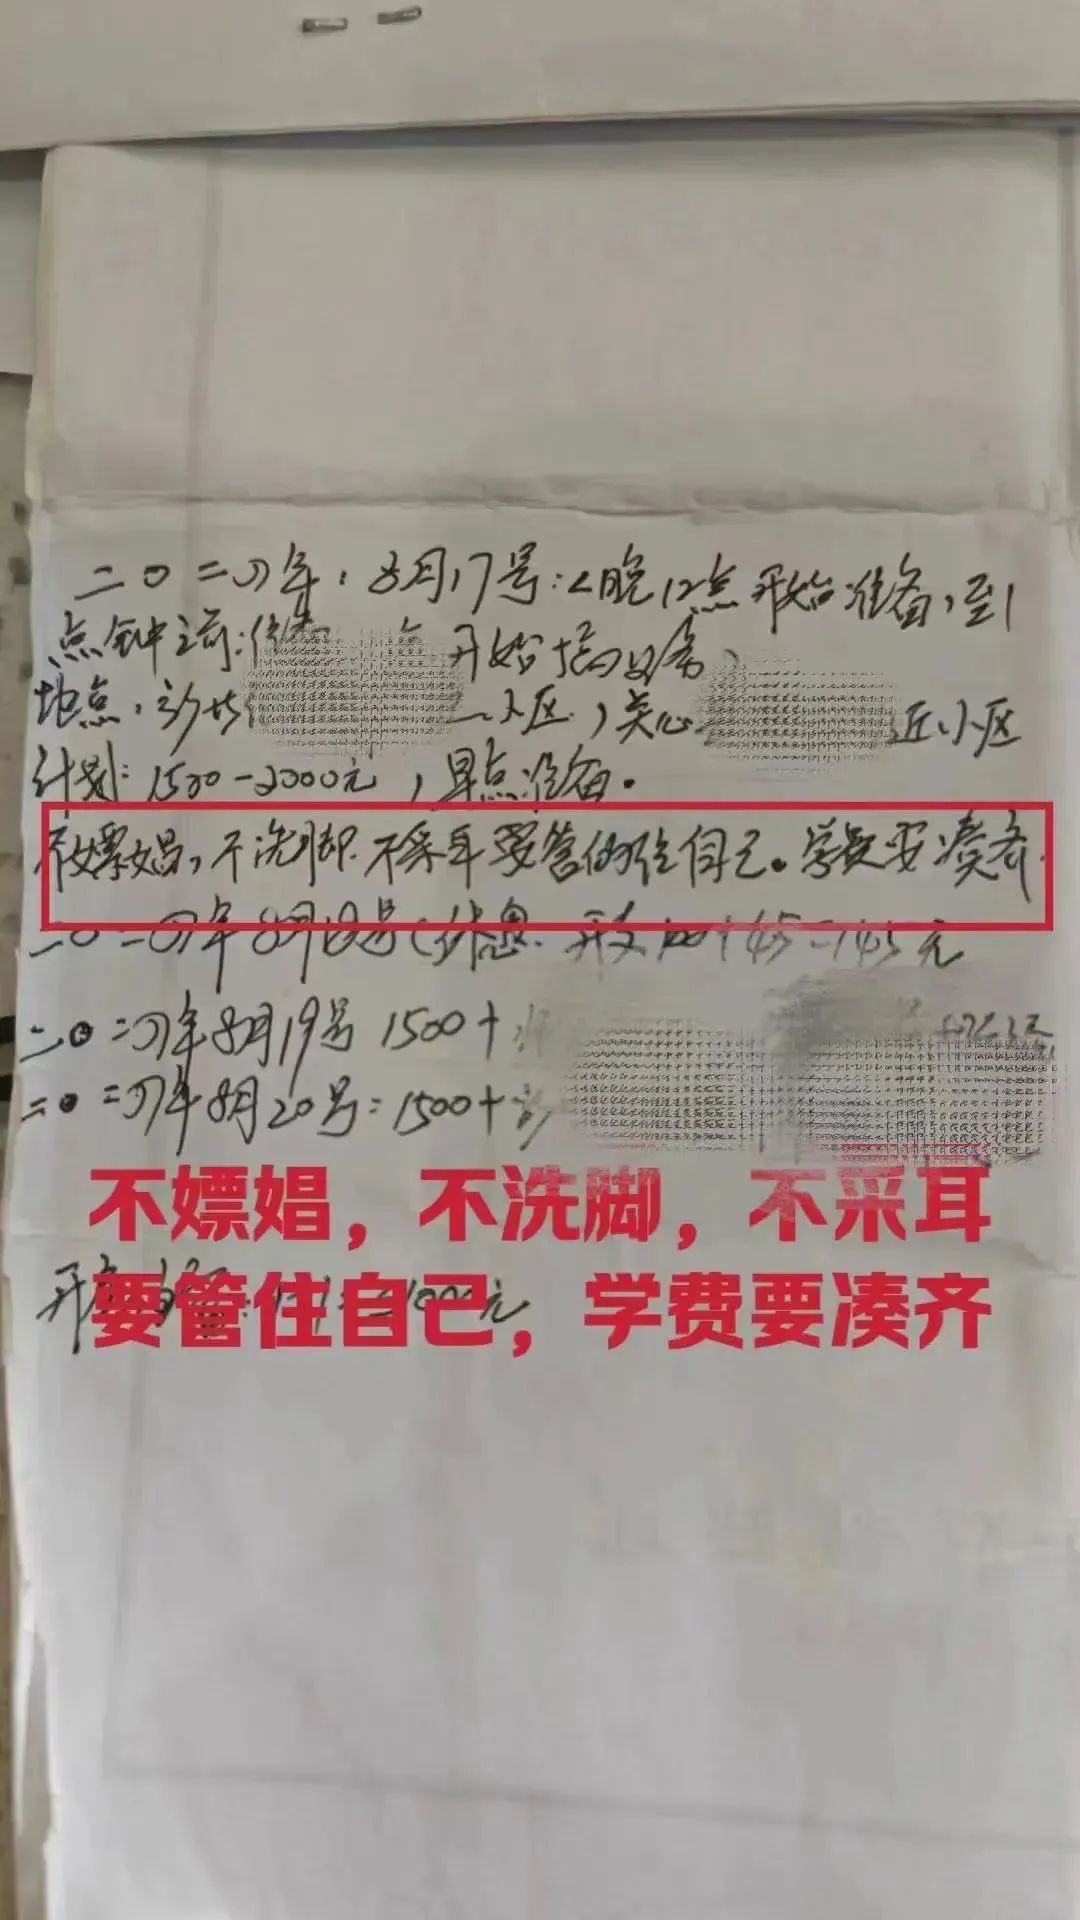 二〇二四年，8月17号：<晚12点开始准备，到1
点钟之前：准 开始搞
地点， 小区，关心 近小区
计划：1500-2000元，早点准备。
不嫖娼，不洗脚 不采耳 要管 住自己。学费要凑齐.
二〇二四年8月18号（休息. 开支 100+45=145元
二〇二四年8月19号 1500+
二〇二四年8月20号：1500+
不嫖娼，不洗脚，不采耳
要管住自己，学费要凑齐